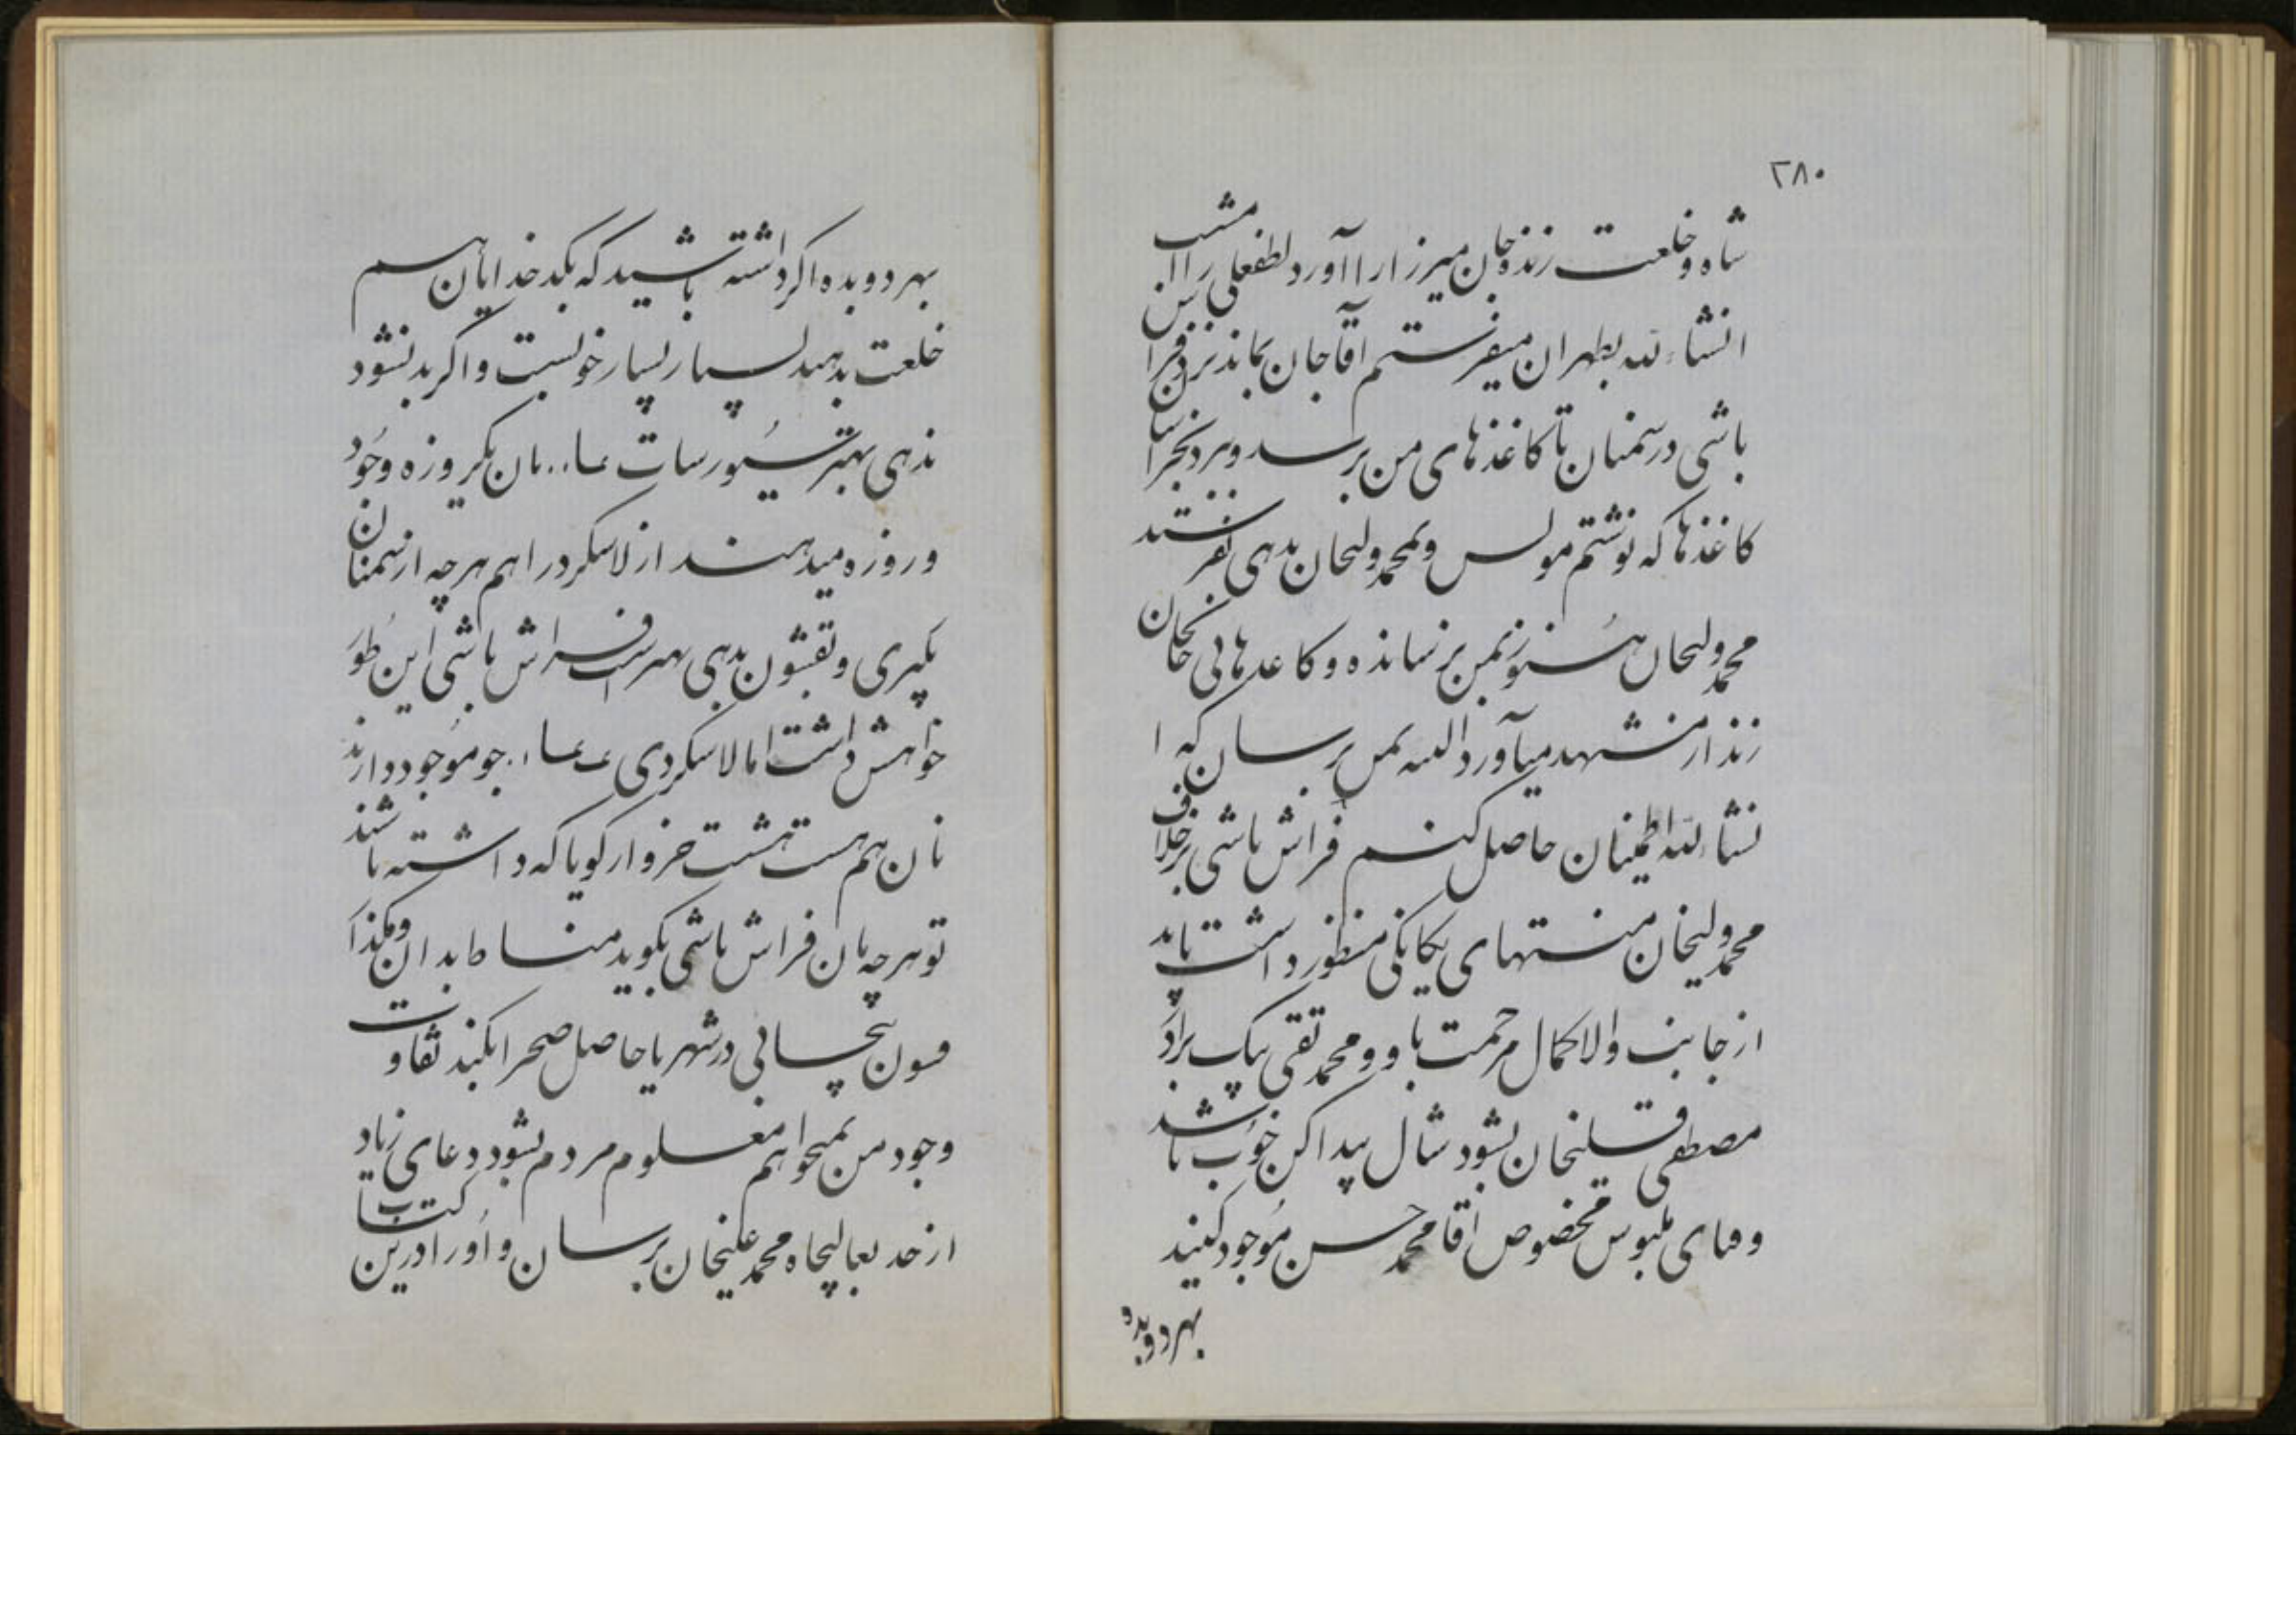 ۲۸۰
شاه و خلعت زنده جان میرزا را آورد لطفعلی را امشب
انشاءالله بطهران میفرستم آقا جان بماند نزد فرا
باشی در سمنان تا کاغذهای من برسد و برد بخرا
کاغذها که نوشتم مولس و بمحمد ولیخان بدهی نفرستند
محمد ولیخان هنوز بمن نرسانده و کاغذهائی خان
زند از مشهد میآورد البته بمن برسان که ا
نشاءالله اطمینان حاصل کنم فراش باشی برخلاف
محمد ولیخان منتهای یکانکی منظور داشت باید
از جانب والا کمال مرحمت باو و محمد تقی بیک براد
مصطفی قلیخان بشود شال پیدا کن خوب باشد
و قبای ملبوس مخصوص آقا محمد حسن موجود کنید
بهر دو بده
بهر دو بده اکر داشته باشید که بکدخدایان هم
خلعت بدهید بسیار بسیار خوبست و اکر بد نشود
ندهی بهتر سیورسات ما نان یکروزه وجود
و روزه میدهند از لاسکرد را هم هرچه از سمنان
بگیری و بقشون بدهی بهتر است فراش باشی این طور
خواهش داشت اما لاسکردی جو موجود دارند
نان هم هست هشت خروار کویا که داشته باشند
تو هرچه بان فراش باشی بکوید مناط بدان و مکذا
قسون پنجائی در شهر یا حاصل صحرا بکند تفاوت
وجود من نمیخواهم معلوم مردم بشود دعای زیاد
از حد بعالیجاه محمد علیخان برسان و او را درین کتاب